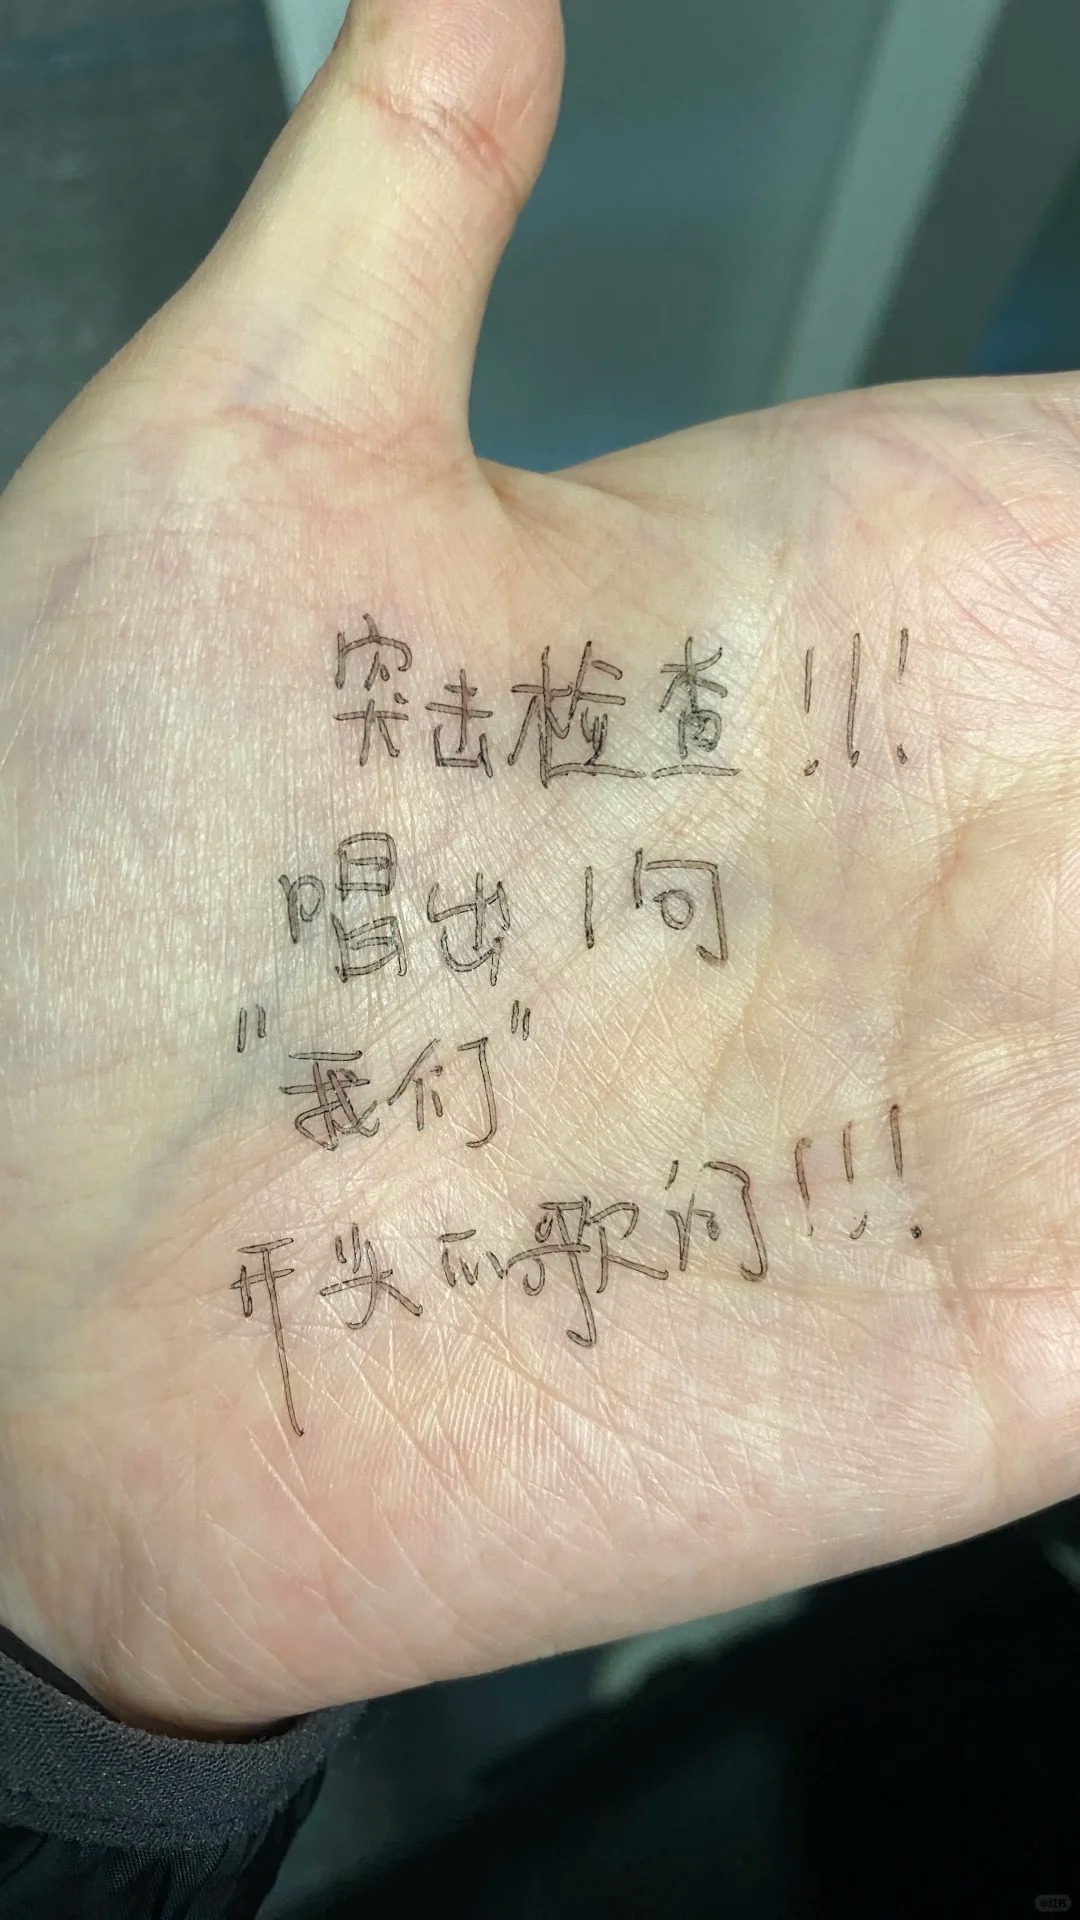 突击检查!!!
唱出1句
"我们"
开头的歌词!!!